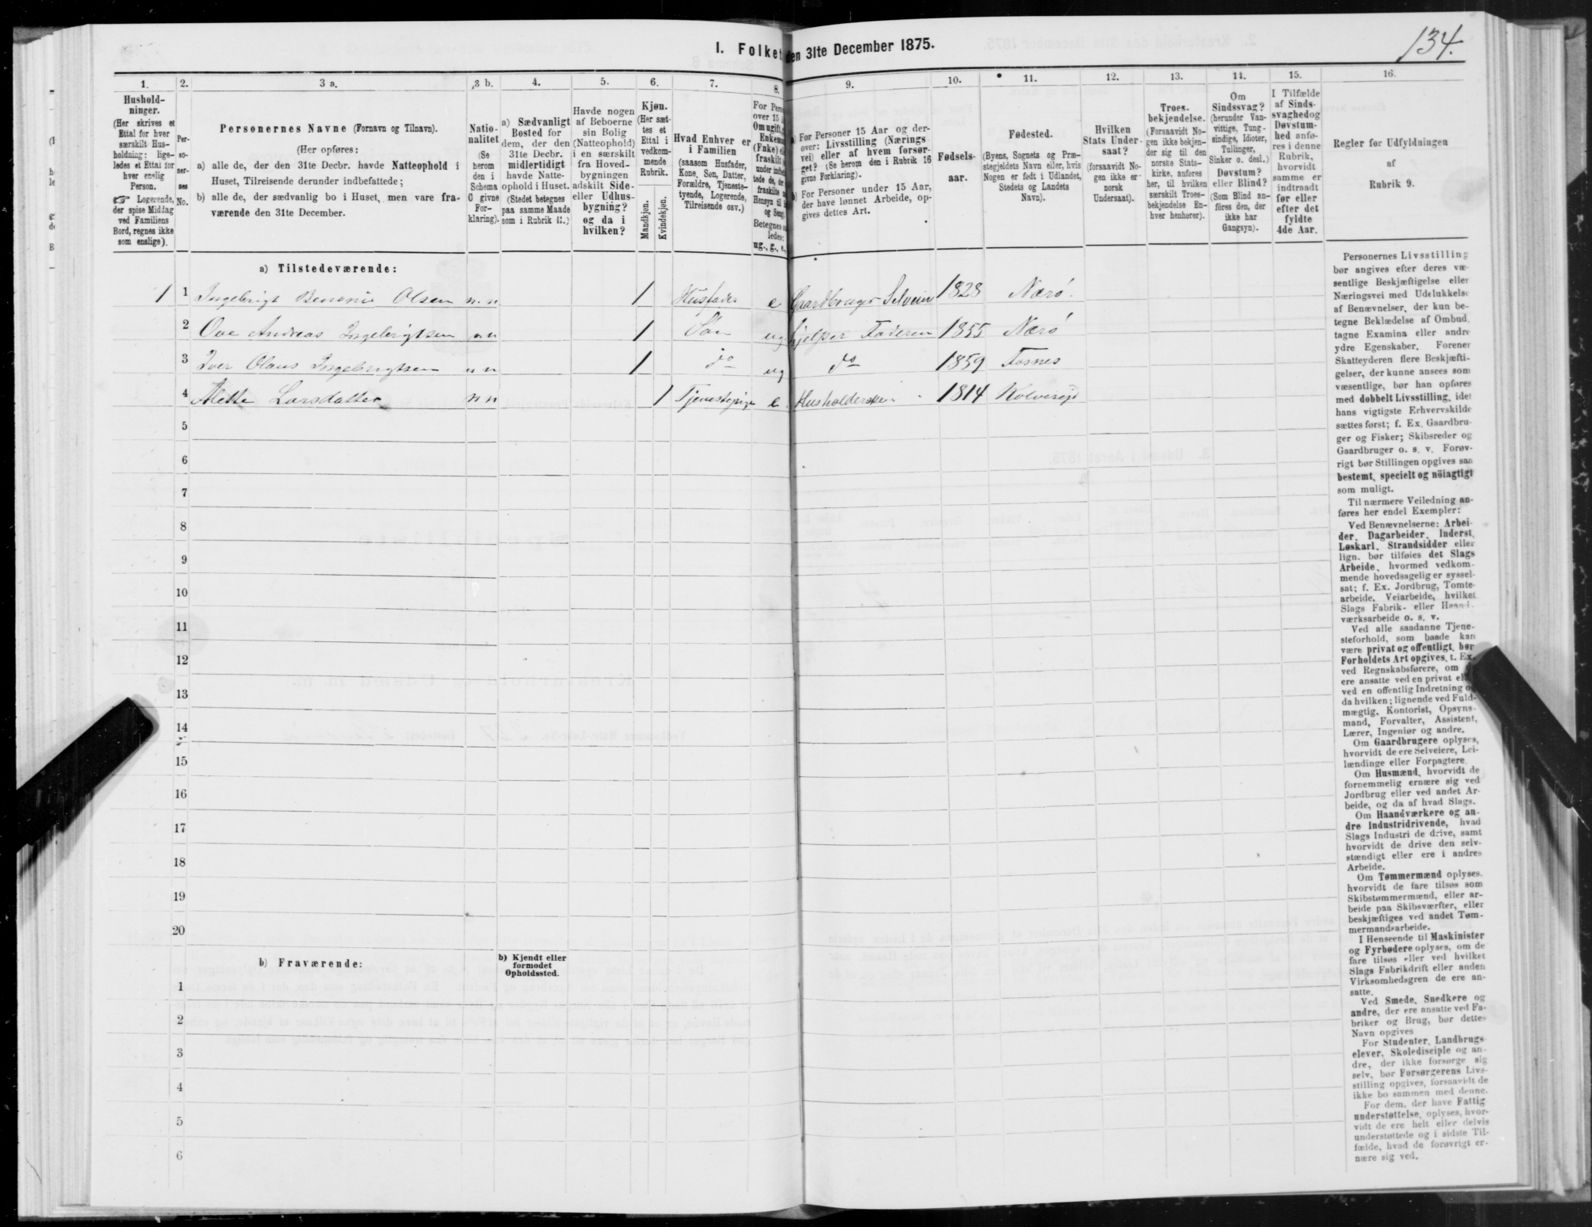 134.
I. Folket
den 31te December 1875.
1. 2. 3 a. 3 b. 4. 5. 6. 7. 8. 9. 10. 11. 12. 13. 14. 15. 16.
Hushold-
ninger.
(Her skrives et
Ettal for hver
særskilt Hus-
holdning; lige-
ledes et Ettal for
hver enslig
Person.
Logerende,
der spise Middag
ved Familiens
Bord, regnes ikke
som enslige).
Per-
so-
ner-
nes
No.
Personernes Navne (Fornavn og Tilnavn).
(Her opføres:
a) alle de, der den 31te Decbr. havde Natteophold i
Huset, Tilreisende derunder indbefattede;
b) alle de, der sædvanlig bo i Huset, men vare fra-
værende den 31te December.
Natio-
nalitet
(Se
herom
den i
Schema
O givne
For-
klaring).
a) Sædvanligt
Bosted for
dem, der den
31te Decbr.
midlertidigt
havde Natte-
ophold i Huset.
(Stedet betegnes
paa samme Maade
som i Rubrik 11.)
Havde nogen
af Beboerne
sin Bolig
(Natteophold)
i en særskilt
fra Hoved-
bygningen
adskilt Side-
eller Udhus-
bygning?
og da i
hvilken?
Kjøn.
(Her sæt-
tes et
Ettal i
vedkom-
mende
Rubrik.
Mandkjøn.
Kvindekjøn.
Hvad Enhver er
i Familien
(saasom Husfader,
Kone, Søn, Datter,
Forældre, Tjeneste-
tyende, Logerende,
Tilreisende osv.)
For Pers
over 15
Om ugift,
Enkema
(Enke)
fraskilt
ug., g., e.,
a) For Personer 15 Aar og der-
over: Livsstilling (Nærings
vei) eller af hvem forsør-
get? (Se herom den i Rubrik 16
givne Forklaring).
b) For Personer under 15 Aar,
der have lønnet Arbeide, op-
gives dettes Art.
Fødsels-
aar.
Fødested.
(Byens, Sognets og Præ-
stegjeldets Navn eller, hvis
Nogen er født i Udlandet,
Stedets og Landets
Navn).
Hvilken
Stats Under-
saat?
(forsaavidt No-
gen ikke er
norsk
Undersaat).
Troes-
bekjendelse.
(Forsaavidt No-
gen ikke bekjen-
der sig til den
norske Stats-
kirke, anføres
her, til hvilken
særskilt Troes-
bekjendelse En-
hver henhører).
Om
Sindssvag?
(herunder Van-
vittige, Tung-
sindige, Idioter,
Tullinger,
Sinker o. desl.)
Døvstum?
eller Blind?
(Som Blind an-
føres den, der
ikke har
Gangsyn).
I Tilfælde
af Sinds-
svaghed og
Døvstum-
hed anfø-
res i denne
Rubrik,
hvorvidt
samme er
indtraadt
før eller
efter det
fyldte
4de Aar.
Regler for Udfyldningen
af
Rubrik 9.
a) Tilstedeværende:
1 1 Ingebrigt Olsen n.n 1 Husfader e Gaardbruger Selveier 1828 Nærø.
2 Ove Andreas Ingebrigtsen n n 1 Søn ug hjelper Faderen 1855 Nærø
3 Iver Olaus Ingebrigtsen n n 1 do ug do 1859 Fosnes
4 Mette Larsdatter n n 1 Tjenestepige e Husholderske 1814 Kolvereid
5
6
7
8
9
10
11
12
13
14
15
16
17
18
19
20
b) Fraværende:
b) Kjendt eller
formodet
Opholdssted.
1
2
3
4
5
6
Personernes Livsstilling
bør angives efter deres væ-
sentlige Beskjæftigelse eller
Næringsvei med Udelukkelse
af Benævnelser, der kun be-
tegne Beklædelse af Ombud,
tagne Examina eller andre
ydre Egenskaber. Forener
Skatteyderen flere Beskjæfti-
gelser, der kunne ansees som
væsentlige, bør han opføres
med dobbelt Livsstilling, idet
hans vigtigste Erhvervskilde
sættes først; f. Ex. Gaardbru-
ger og Fisker; Skibsreder og
Gaardbruger o. s. v. Forøv-
rigt bør Stillingen opgives saa
bestemt, specielt og nöiagtigt
som muligt.
Til nærmere Veiledning an-
føres her endel Exempler:
Ved Benævnelserne: Arbei-
der, Dagarbeider, Inderst,
Løskarl, Strandsidder eller
lign. bør tilføies det Slags
Arbeide, hvormed vedkom-
mende hovedsagelig er syssel-
sat; f. Ex. Jordbrug, Tomte-
arbeide, Veiarbeide, hvilket
Slags Fabrik- eller Haand-
værksarbeide o. s. v.
Ved alle saadanne Tjene-
steforhold, som baade kan
være privat og offentligt, bør
Forholdets Art opgives, t. Ex.
ved Regnskabsførere, om
ere ansatte ved en privat
ved en offentlig Indretning
da hvilken; lignende ved Fuld-
mægtig, Kontorist, Opsyns-
mand, Forvalter, Assistent,
Lærer, Ingeniør og andre.
Om Gaardbrugere oplyses,
hvorvidt de ere Selveiere, Lei-
lændinge eller Forpagtere.
Om Husmænd, hvorvidt de
fornemmelig ernære sig ved
Jordbrug eller ved andet Ar-
beide, og da af hvad Slags.
Om Haandværkere og an-
dre Industridrivende, hvad
Slags Industri de drive, samt
hvorvidt de drive den selv-
stændigt eller ere i andres
Arbeide.
Om Tømmermænd oplyses,
hvorvidt de fare tilsøs som
Skibstømmermænd, eller ar-
beide paa Skibsværfter, eller
beskjæftiges ved andet Tøm-
mermandsarbeide.
I Henseende til Maskinister
og Fyrbødere oplyses, om de
fare tilsøs eller ved hvilket
Slags Fabrikdrift eller anden
Virksomhedsgren de ere an-
satte.
Ved Smede, Snedkere og
andre, der ere ansatte ved Fa-
briker og Brug, bør dettes
Navn opgives
For Studenter, Landbrugs-
elever, Skoledisciple og an-
dre, der ikke forsørge sig
selv, bør Forsørgerens Livs-
stilling opgives, forsaavidt de
ikke bo sammen med denne.
For dem, der have Fattig-
understøttelse, oplyses, hvor-
vidt de ere helt eller delvis
understøttede og i sidste Til-
fælde, hvad de forøvrigt er-
nære sig ved.